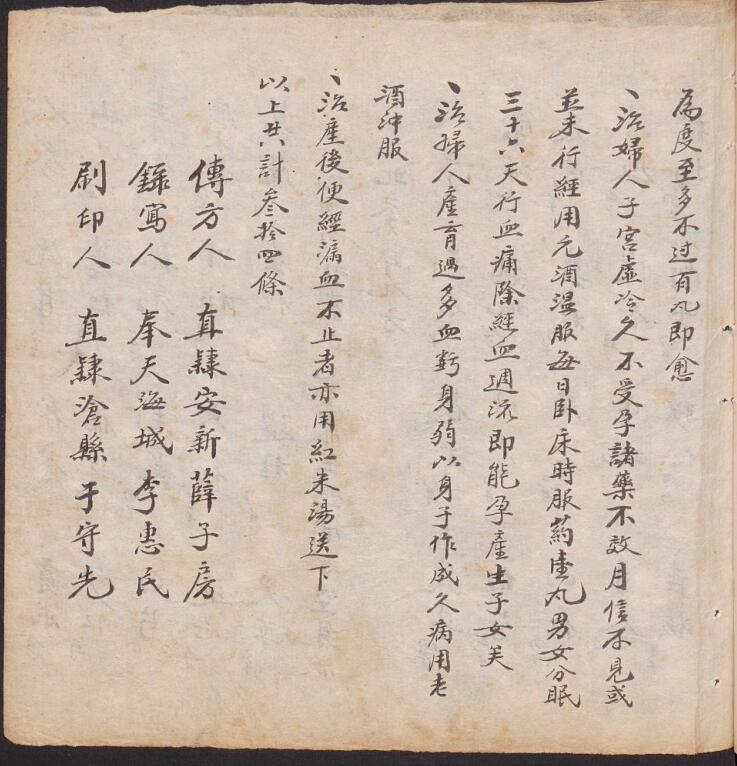 為度至多不过百丸即愈
丶治婦人子宮虛冷久不受孕諸藥不效月信不見或
並未行經用元酒溫服每日卧床時服药壹丸男女分眠
三十六天行血痛除經血週流即能孕產生子女矣
丶治婦人產育過多血虧身弱以身子作成久病用老
酒沖服
丶治產後便經漏血不止者亦用紅朱湯送下
以上共計叁拾四條
傳方人 直隸安新薛子房
錄寫人 奉天海城李惠民
刷印人 直隸滄縣于守先